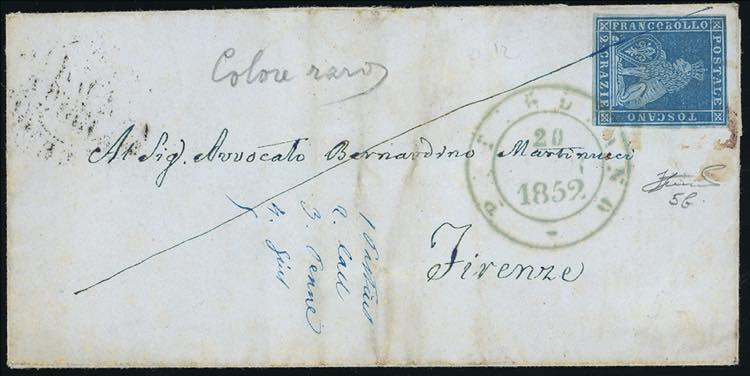 FRANCOBOLLO
POSTALE
TOSCANO
2 CRAZIE
Colore raro
20
1852
Al Sig. Avvocato Bernardino Martinucci
Firenze
1
2.
3. Penne
4.
56